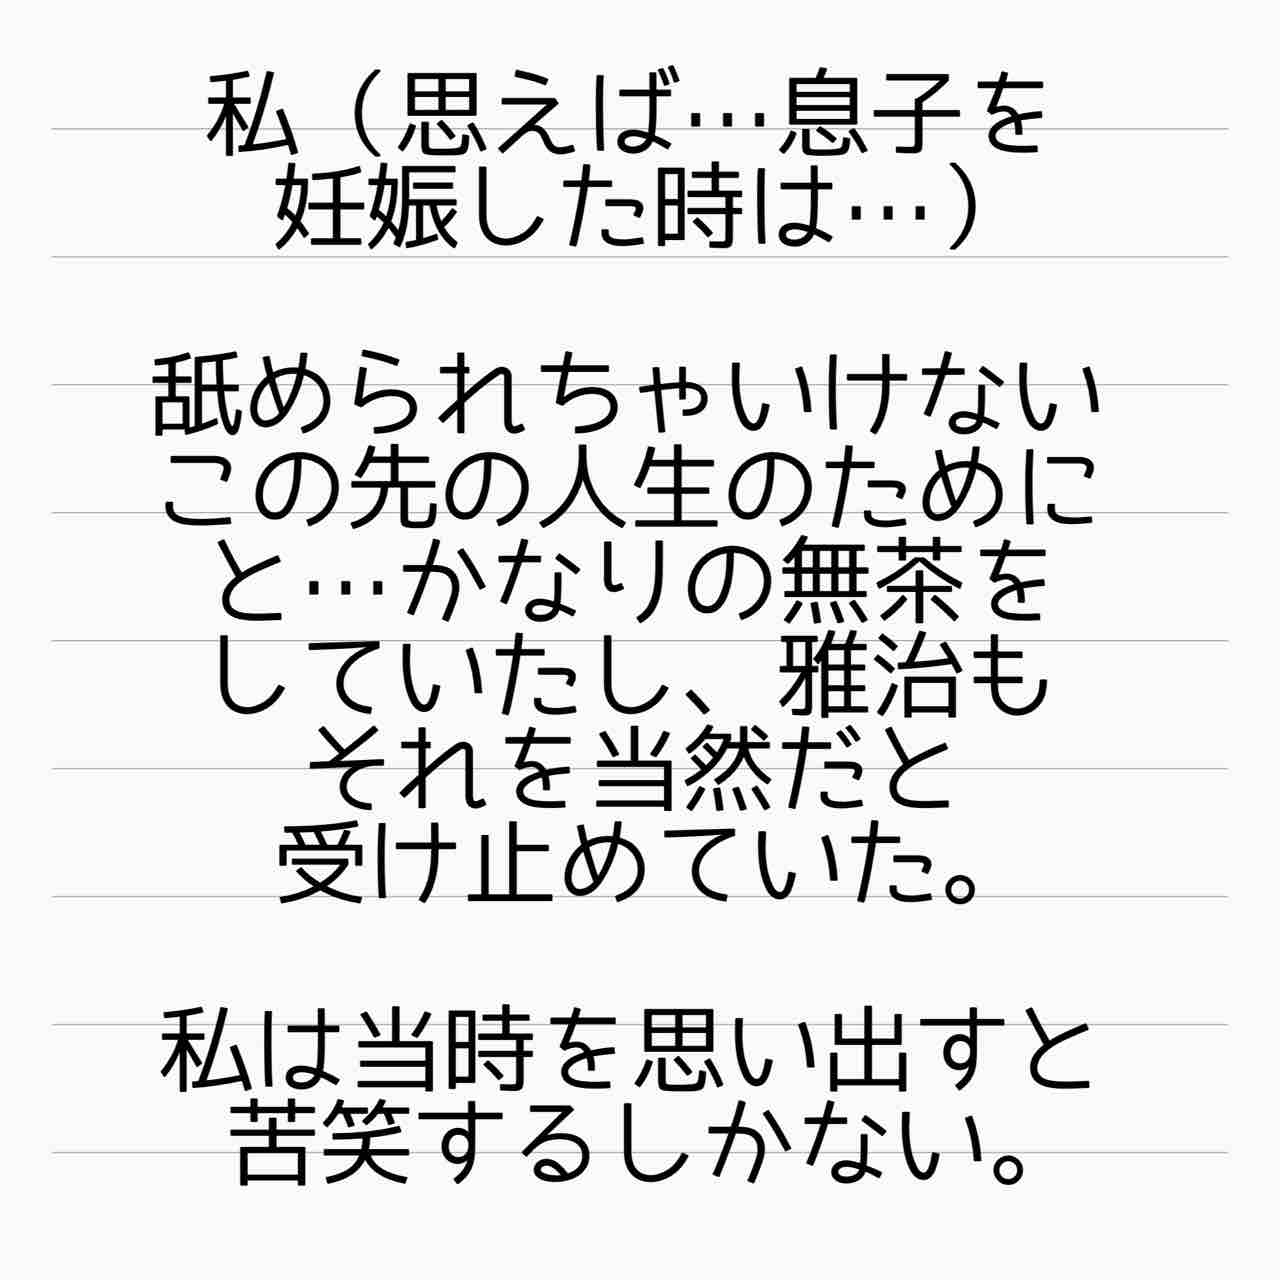 私（思えば…息子を
妊娠した時は…）
舐められちゃいけない
この先の人生のために
と…かなりの無茶を
していたし、雅治も
それを当然だと
受け止めていた。
私は当時を思い出すと
苦笑するしかない。